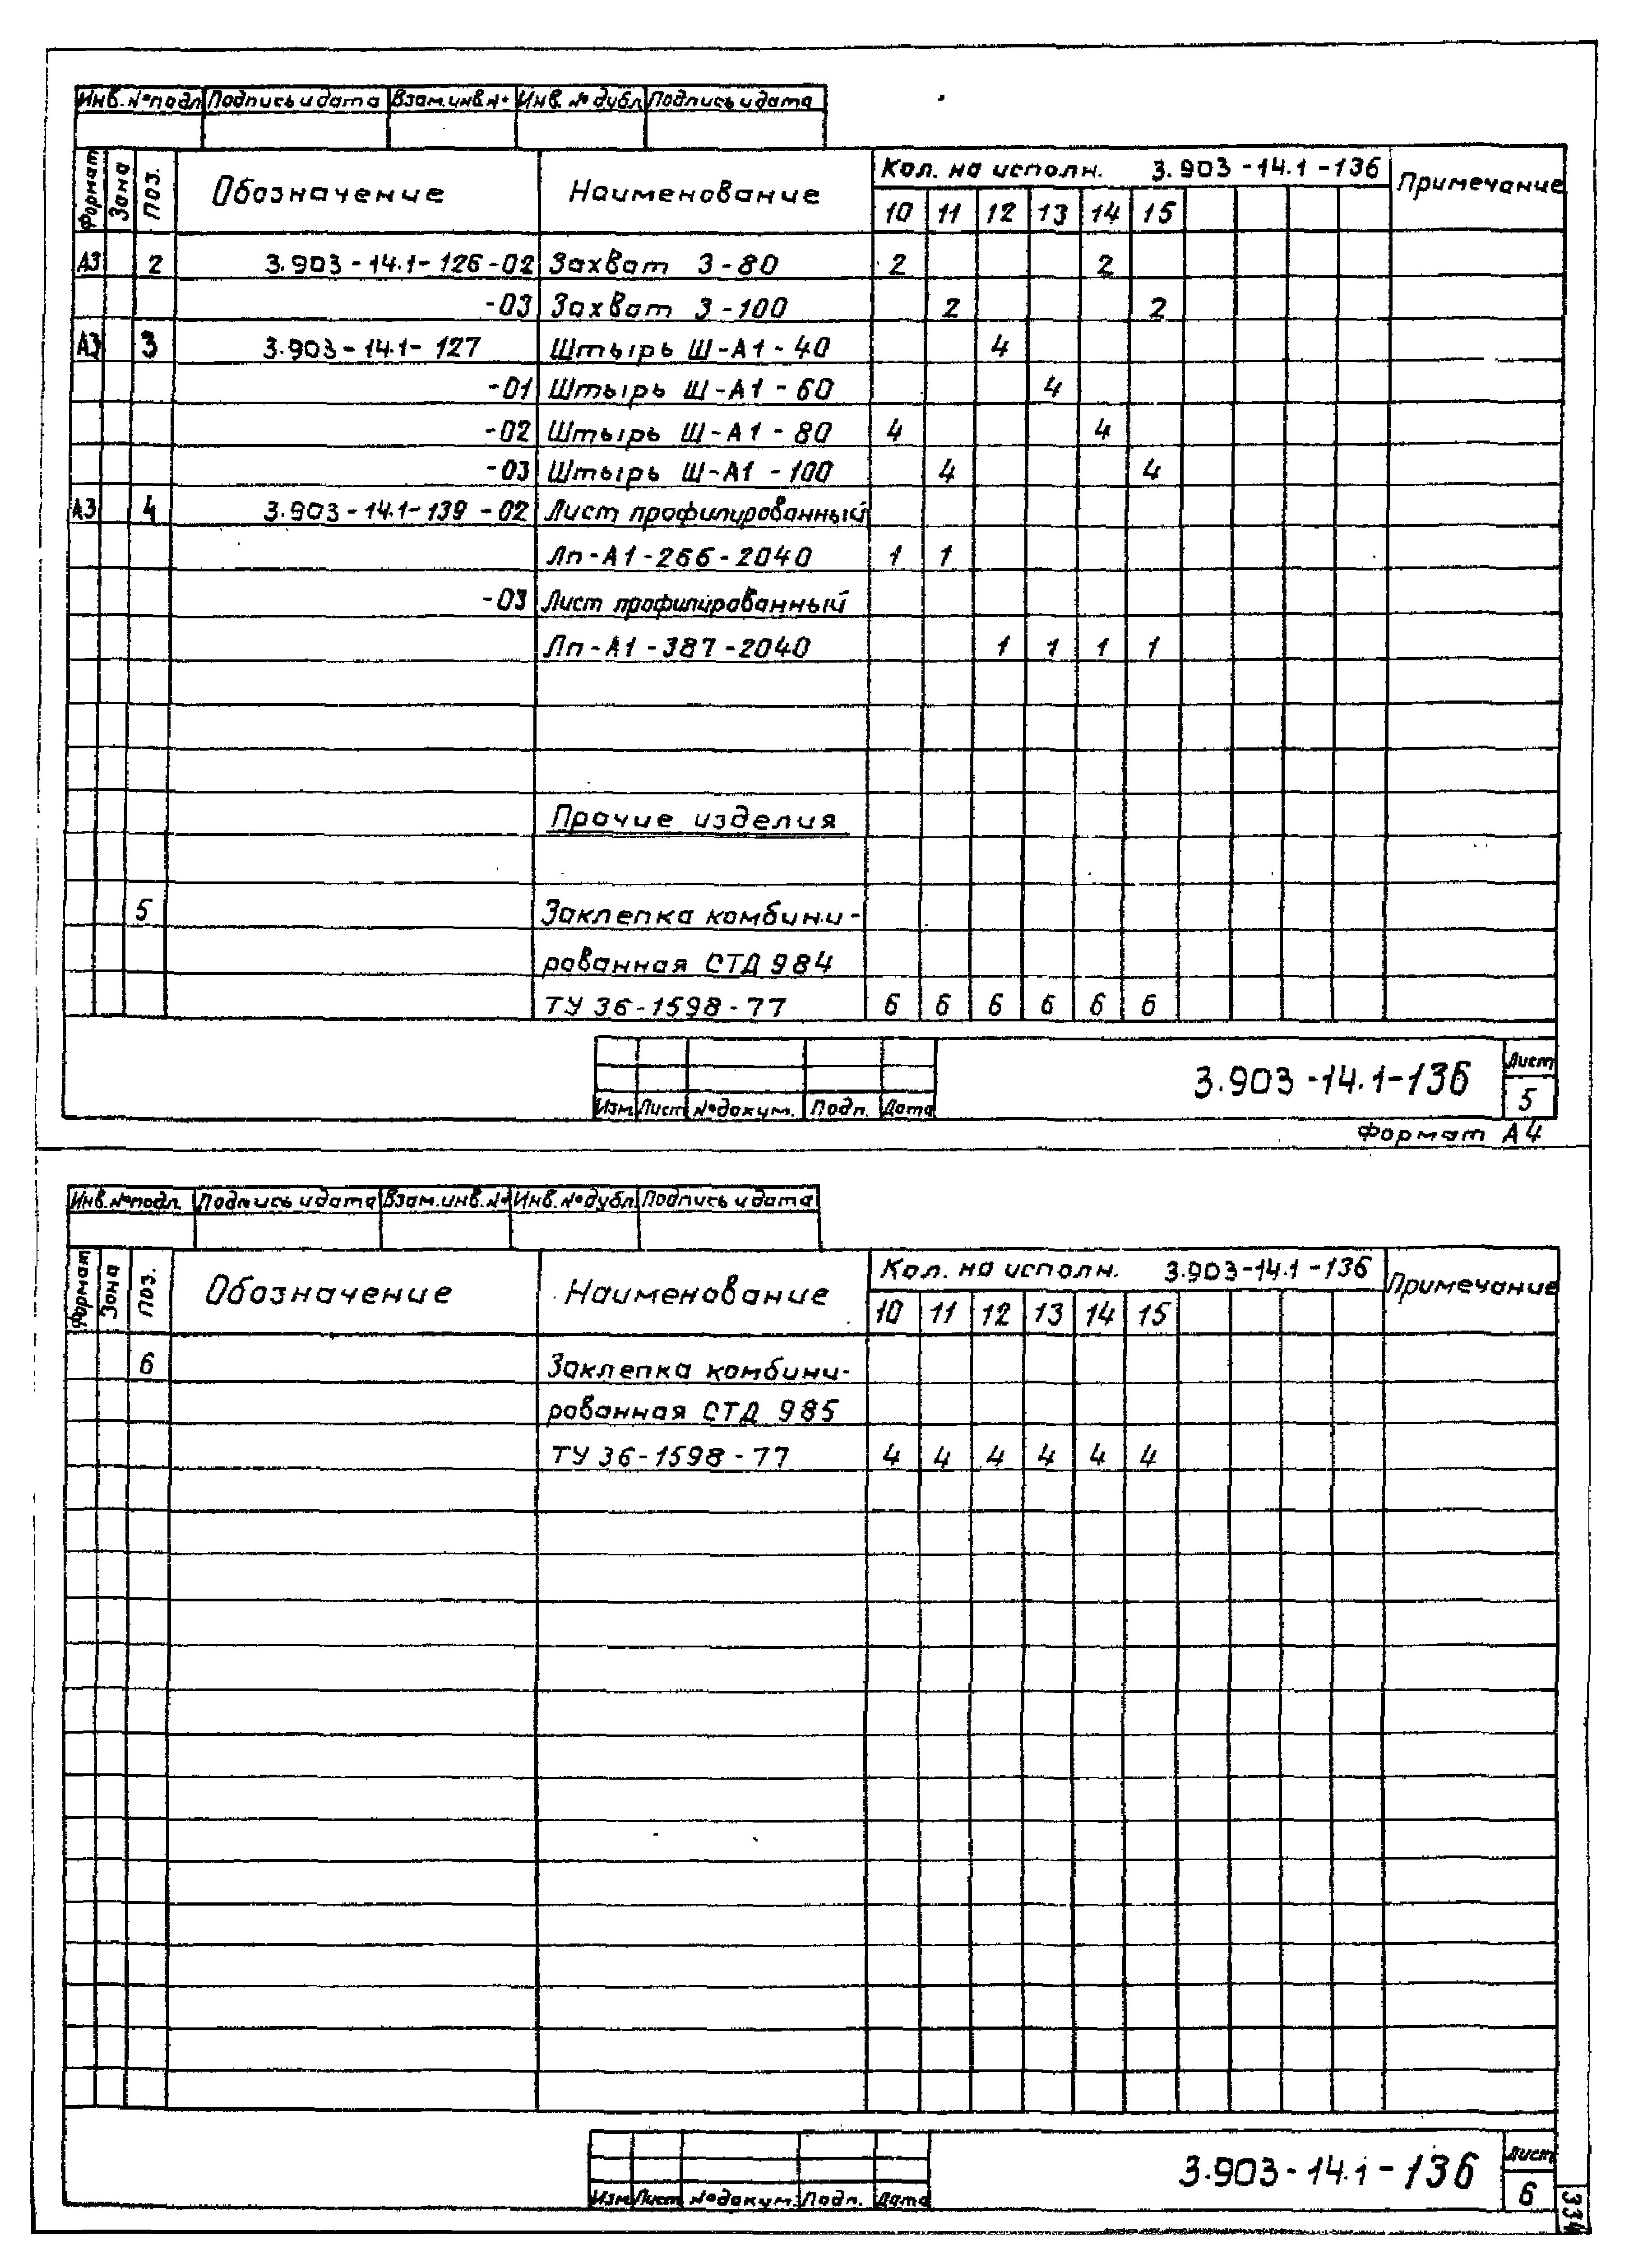 Инв. № подл Подпись и дата Взам.инв.№ Инв. № дубл Подпись и дата
Формат Зона Поз. Обозначение Наименование Кол. на исполн. 3.903-14.1-136 Примечание
10 11 12 13 14 15
А3 2 3.903-14.1-126-02 Захват З-80 2 2
-03 Захват З-100 2 2
А3 3 3.903-14.1-127 Штырь Ш-А1-40 4
-01 Штырь Ш-А1-60 4
-02 Штырь Ш-А1-80 4 4
-03 Штырь Ш-А1-100 4 4
А3 4 3.903-14.1-139-02 Лист профилированный
Лп-А1-266-2040 1 1
-03 Лист профилированный
Лп-А1-387-2040 1 1 1 1
Прочие изделия
5 Заклепка комбини-
рованная СТД 984
ТУ 36-1598-77 6 6 6 6 6 6
3.903-14.1-136 Лист
Изм Лист № докум. Подп. Дата 5
Формат А4
Инв.№ подл. Подпись и дата Взам.инв.№ Инв.№ дубл. Подпись и дата
Формат Зона Поз. Обозначение Наименование Кол. на исполн. 3.903-14.1-136 Примечание
10 11 12 13 14 15
6 Заклепка комбини-
рованная СТД 985
ТУ 36-1598-77 4 4 4 4 4 4
3.903-14.1-136 Лист
Изм Лист № докум. Подп. Дата 6
334